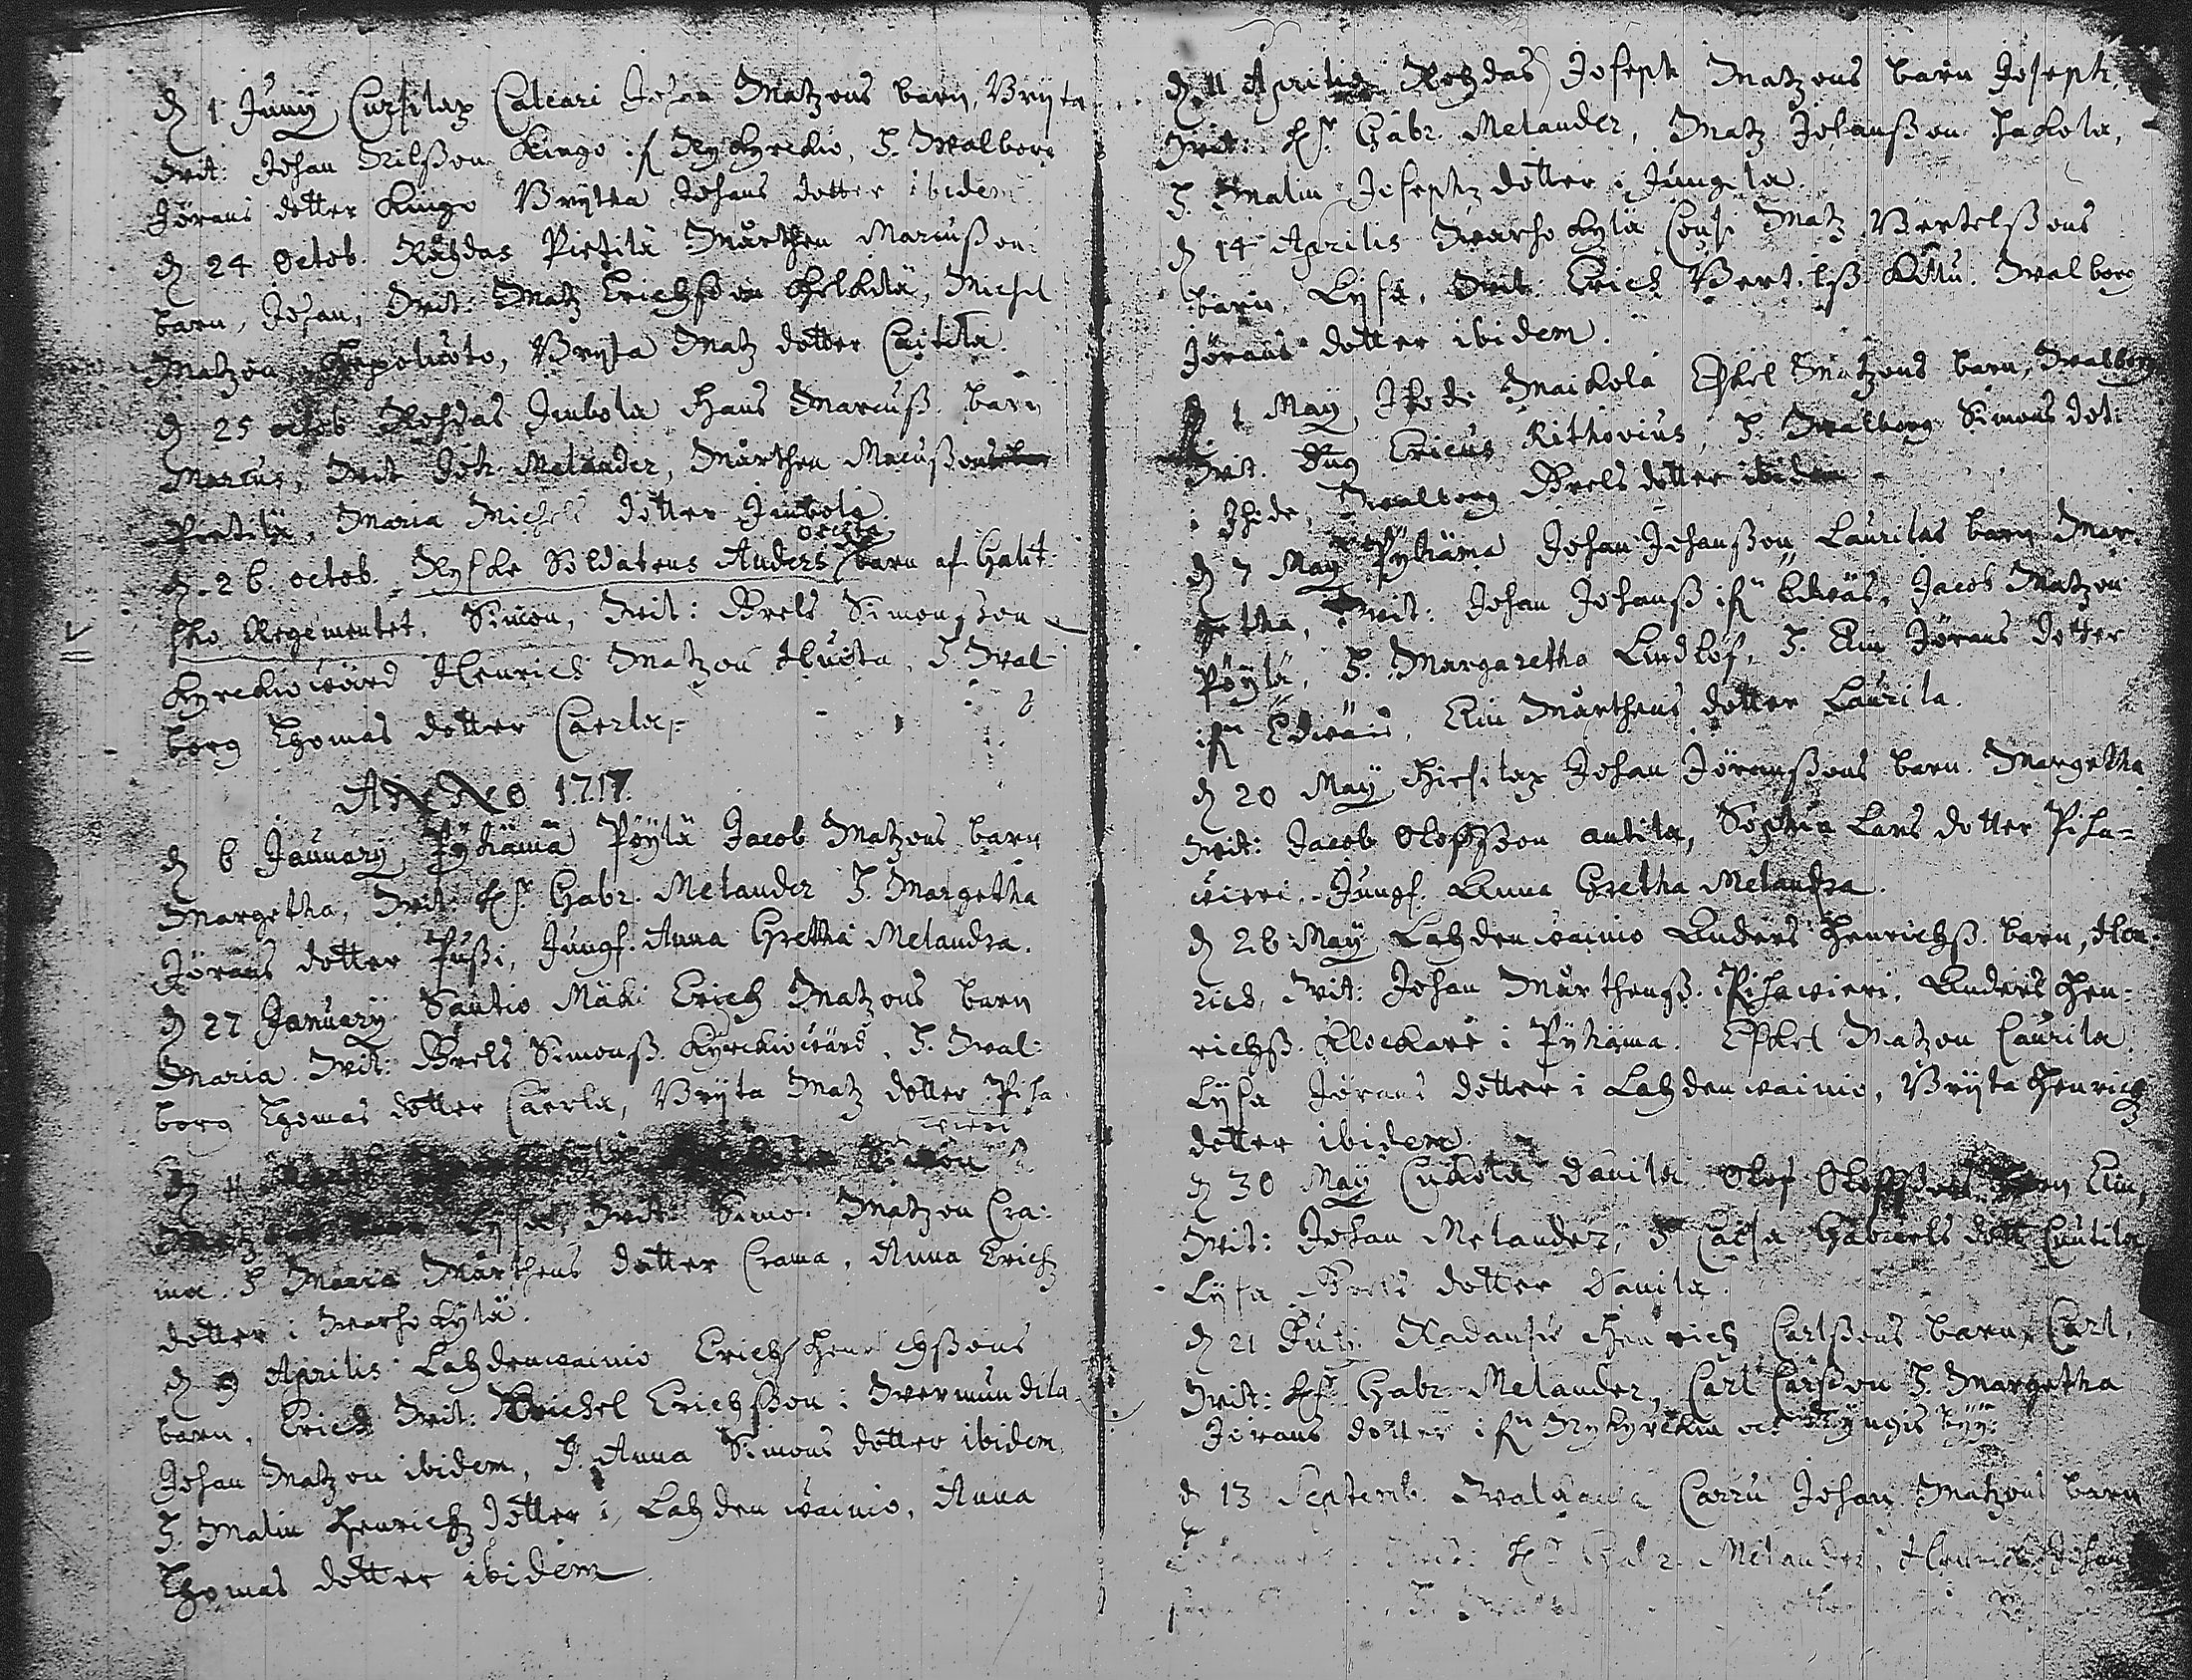 d 1 Junÿ Cursilax Calcari Johan Matzons barn, Brijta
Wit: Johan Nilsson Kingo if Nykyrckio, H. Walborg
Jörans dotter Kingo Brijtha Johans dotter ibidem
d 24 Octob. Rohdas Pietilä Mårthen Marcusson:
barn, Johan, Wit: Matz Erichsson Helkilä, Michel
Matzon, Brijta Matz dotter Caitila.
d 25 octob Rohdas Jmbola Hans Marcuss. barn
Marcus, Wit Joh. Melander, Mårthen Marcussons
Pietilä, Maria Michels dotter Jmbola
d. 26. octob. Ryske Soldatens Anders Orella barn af Halit
sko Regementet. Simon, Wit: Brels Simonsson
kyrckiowärd Henrich Matzon Huista, H. Wal
borg Thomas dotter Caerla
ANNO 1717.
d 6 January Pÿhämä Pöylä Jacob Matzons barn
Margetha, Wit: Hr. Gabr. Melander H. Margetha
Jörans dotter Pussi, Jungf. Anna Gretha Melandra.
d 27 January Santio Mäki Erich Matzons barn
Maria. Wit: Brels Simonss. Kyrckiowärd, H. Wal:
borg Thomas dotter Caerla, Brijta Matz dotter Piha
wieri
d 11 Simon
Lysa, Wit: Simo Matzon Cra:
ma. H Maria Mårthens dotter Crama, Anna Erichz
dotter i Warhokylä.
d 9 Aprilis Lahdenwainio Erich Henrichssons
barn, Erich Wit: Michel Erichsson i Wermundila
Johan Matzon ibidem, H. Anna Simons dotter ibidem,
H. Malin Henrichz dotter i Lahdenwainio, Anna
Thomas dotter ibidem
d. 11 Aprilis Rohdas Joseph Matzons barn Joseph,
Wit: Hr. Gabr. Melander, Matz Johansson Hakola,
H. Malin Josephz dotter i Jungila.
d 14 Aprilis Warhokylä Cousi Matz Bertelssons
barn Lysa, Wit: Erich Bertilss. Kättü. Walborg
Jörans dotter ibidem.
d 1 May Jhode Maikola Eskel Matzons barn, Walborg
Wit. Dn9 Ericus Rithovius, H. Walborg Simons dot:
i Jhode, Walborg Brels dotter ibidem
d 7 May Pyhäma Johan Johansson Laurilas barn Mar
getha, Wit: Johan Johanss ifr Edwäis, Jacob Matzon
Pöylä, H. Margaretha Lindlöf, H. Elin Jörans dotter
ifr Edwäis, Elin Mårthens dotter Laurila.
d 20 May Hirsilax Johan Jöranssons barn. Margetha
Wit: Jacob Olofsson antila, Sophia Lars dotter Piha=
wieri, Jungf. Anna Gretha Melandra.
d 26 May Lahdenwainio Anders Henrichss. barn, Hen
rich, Wit: Johan Mårthenss. Pihawieri, Anders Hen:
richss. klockare i Pyhäma. Eskel Matzon Laurila
Lysa Jörans dotter i Lahdenwainio, Brijta Henrichz
dotter ibidem.
d 30 May Cukola Danila Olof Olofssons barn Elin,
Wit: Johan Melander, H Caisa Gabriels dott Cuutila
Lysa dotter Danila.
d 21 Juli Radansu Henrich Carlssons barn, Carl,
Wit: Hr. Gabr. Melander, Carl Carlsson H. Margetha
Jörans dotter ifr Nykyrckia och Myngis byy:
d 13 Septemb. Carru Johan Matzons barn
Wit: Hr. Gabr. Melander, Henrich Johan